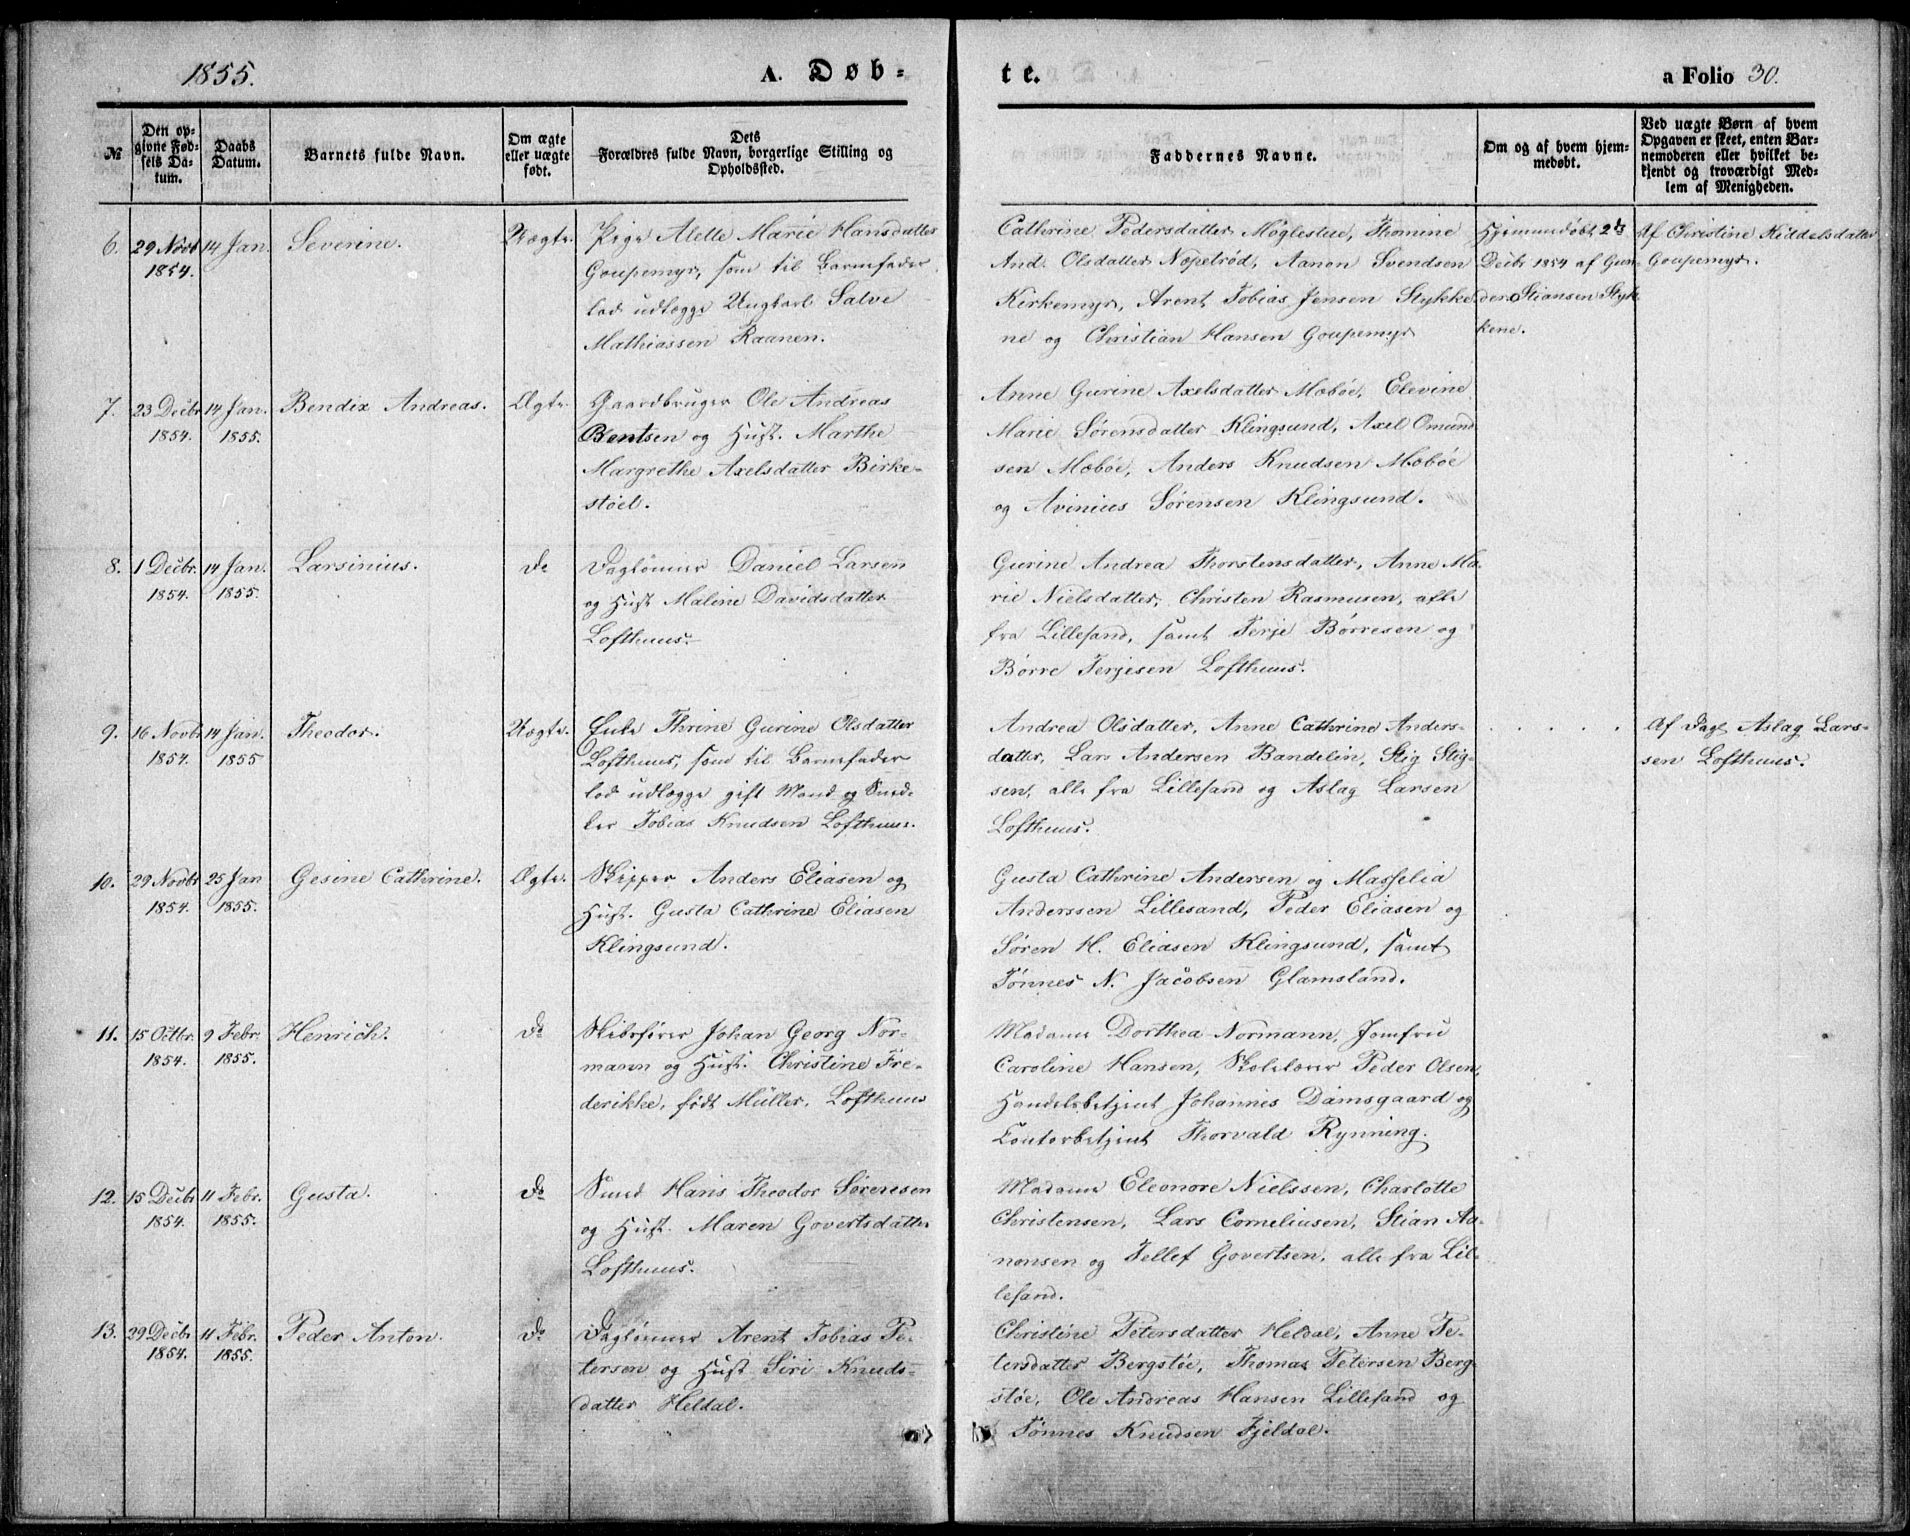 1855.
A. Døb-
te.
a Folio 30.
№
Den op-
givne Fød-
sels Da-
tum.
Daabs
Datum.
Barnets fulde Navn.
Om ægte
eller uægte
født.
Dets
Forældres fulde Navn, borgerlige Stilling og
Opholdssted.
Faddernes Navne.
Om og af hvem hjem-
medøbt.
Ved uægte Børn af hvem
Opgaven er skeet, enten Bar-
nemoderen eller hvilket be-
kjendt og troværdigt Med-
lem af Menigheden.
6.
29 Novbr
1854.
14 Jan.
Severine.
Uægte.
Pige Alette Marie Hansdatter
Goupemyr, som til Barnefader
lod udlægge Ungkarl Salve
Mathiassen Raanen.
Cathrine Pedersdatter Møglestue, Thomine
And. Olsdatter Næpetrød, Aanon Svendsen
Kirkemyr, Arent Tobias Jensen Stykke-
ne og Christian Hansen Goupemyr
Hjemmedøbt 2de
Decbr 1854 af Gun-
der Stiansen Styk-
kene.
Af Christine Kiddelsdatter
Goupemyr.
7.
23 Decbr
1854.
14 Jan.
1855.
Bendix Andreas.
Ægte.
Gaardbruger Ole Andreas
Bentsen og Hust. Marthe
Margrethe Axelsdatter Birke-
støel.
Anne Gurine Axelsdatter Mæbøe, Elevine
Marie Sørensdatter Klingsund, Axel Omund-
sen Mæbøe, Anders Knudsen Mæbøe
og Avinius Sørensen Klingsund.
8.
1 Decbr.
1854.
14 Jan.
1855.
Larsinius.
do
Daglønner Daniel Larsen
og Hust Maline Davidsdatter
Lofthuus.
Gurine Andrea Thorstensdatter, Anne Ma-
rie Nielsdatter, Christen Rasmusen, alle
fra Lillesand, samt Terje Børresen og
Børre Terjesen Lofthuus.
9.
16 Novbr
1854.
14 Jan.
1855
Theodor.
Uægte.
Enke Thrine Gurine Olsdatter
Lofthuus, som til Barnefader
lod udlægge gift Mand og Sned-
ker Tobias Knudsen Lofthuus.
Andrea Olsdatter, Anne Cathrine Anders-
datter, Lars Andersen Bandelin, Stig Stig-
sen, alle fra Lillesand og Aslag Larsen
Lofthuus.
. . . . .
Af Dagl Aslag Lars-
sen Lofthuus.
10.
29 Novbr
1854.
25 Jan
1855.
Gesine Cathrine.
Ægte.
Skipper Anders Eliasen og
Hust. Gusta Cathrine Eliasen
Klingsund.
Gusta Cathrine Andersen og Masselia
Anderssen Lillesand, Peder Eliasen og
Søren H. Eliasen Klingsund, samt
Tønnes N. Jacobsen Glamsland.
11.
15 Octbr.
1854.
9 Febr.
1855.
Henrich.
do
Skibsfører Johan Georg Nor-
mann og Hust. Christine Fre-
derikke, født Müller, Lofthuus
Madame Dorthea Normann, Jomfru
Caroline Hansen, Skolelærer Peder Olsen,
Handelsbetjent Johannes Damsgaard og
Contorbetjent Thorvald Rynning.
12.
15 Decbr
1854.
11 Febr.
1855.
Gusta.
do
Smed Hans Theodor Sørensen
og Hust. Maren Govertsdatter
Lofthuus.
Madame Eleonore Nielssen, Charlotte
Christensen, Lars Corneliusen, Stian Aa-
nonsen og Tellef Govertsen, alle fra Lil-
lesand.
13.
29 Decbr
1854.
11 Febr.
1855.
Peder Anton.
do
Daglønner Arent Tobias Pe-
tersen og Hust Siri Knuds-
datter Heldal.
Christine Petersdatter Heldal, Anne Pe-
tersdatter Bergstøe, Thomas Petersen Berg-
støe, Ole Andreas Hansen Lillesand og
Tønnes Knudsen Fjeldal.